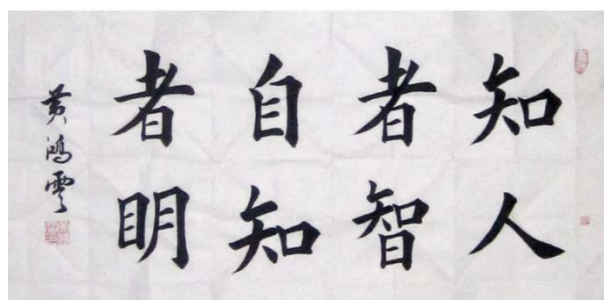 知人
者智
自知
者明
黄鸿雲